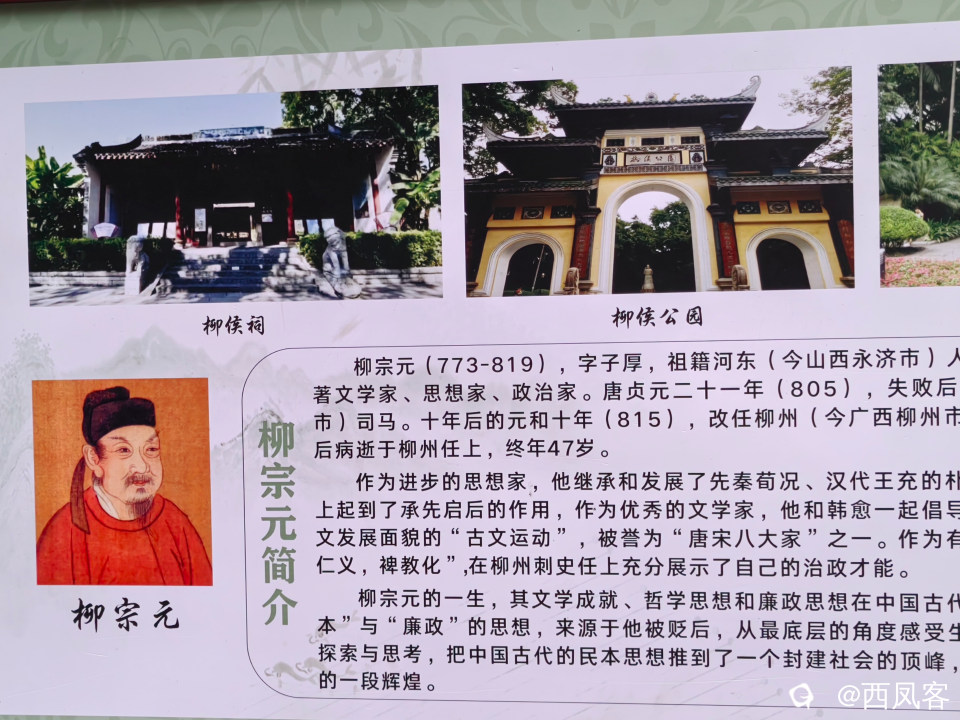 柳侯公园
柳侯祠
柳侯公园
柳宗元
柳宗元简介
柳宗元（773-819），字子厚，祖籍河东（今山西永济市）人
著文学家、思想家、政治家。唐贞元二十一年（805），失败后
市）司马。十年后的元和十年（815），改任柳州（今广西柳州市
后病逝于柳州任上，终年47岁。
作为进步的思想家，他继承和发展了先秦荀况、汉代王充的朴
上起到了承先启后的作用，作为优秀的文学家，他和韩愈一起倡导
文发展面貌的“古文运动”，被誉为“唐宋八大家”之一。作为有
仁义，裨教化”,在柳州刺史任上充分展示了自己的治政才能。
柳宗元的一生，其文学成就、哲学思想和廉政思想在中国古代
本”与“廉政”的思想，来源于他被贬后，从最底层的角度感受生
探索与思考，把中国古代的民本思想推到了一个封建社会的顶峰，
的一段辉煌。
@西凤客